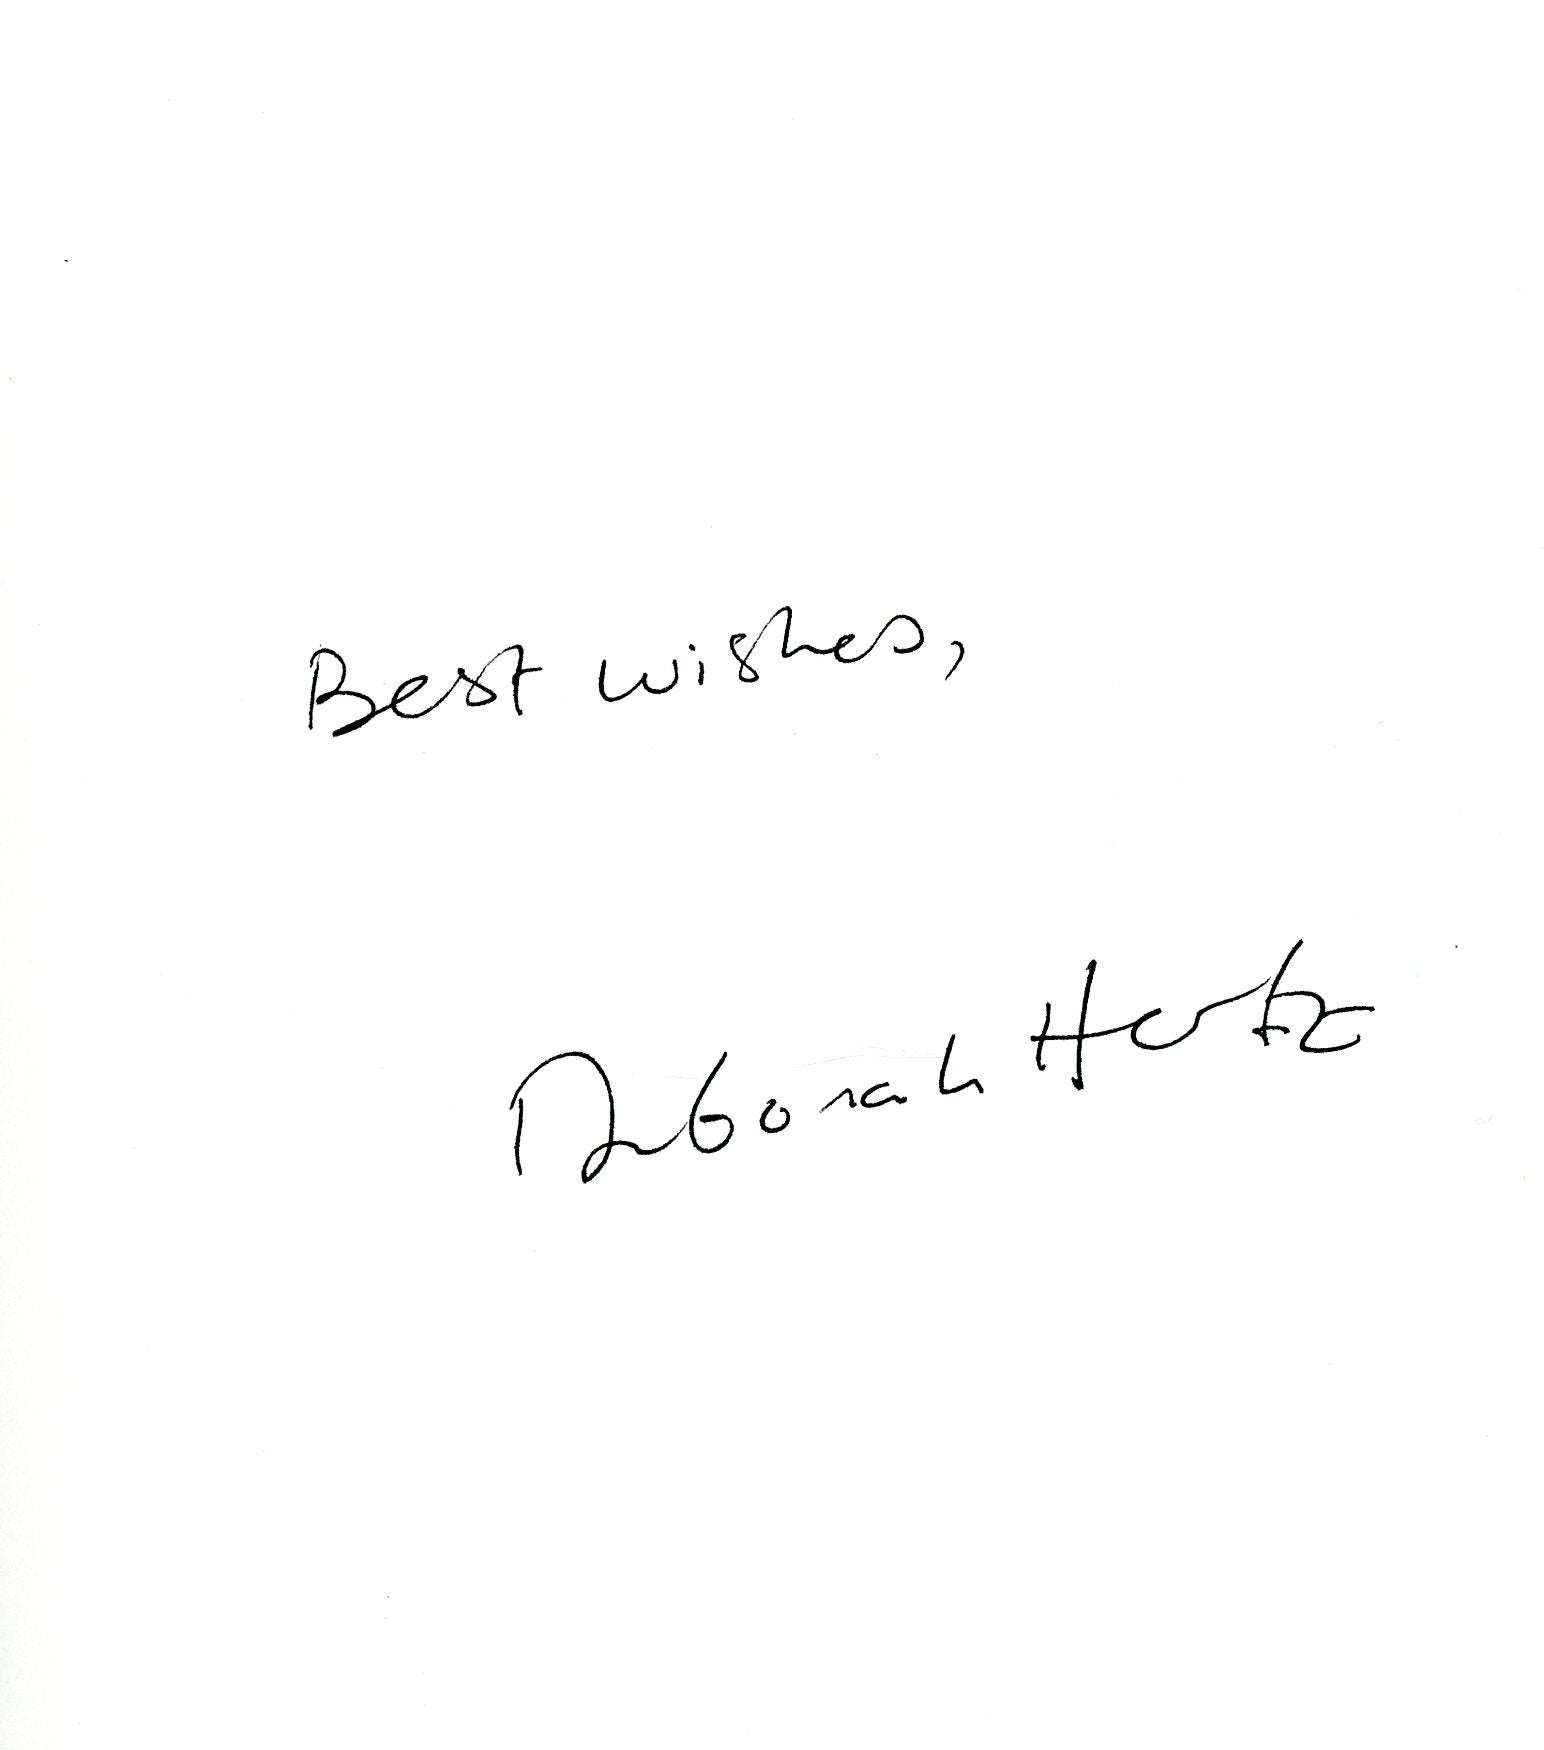 Best wishes,
Deborah Hertz